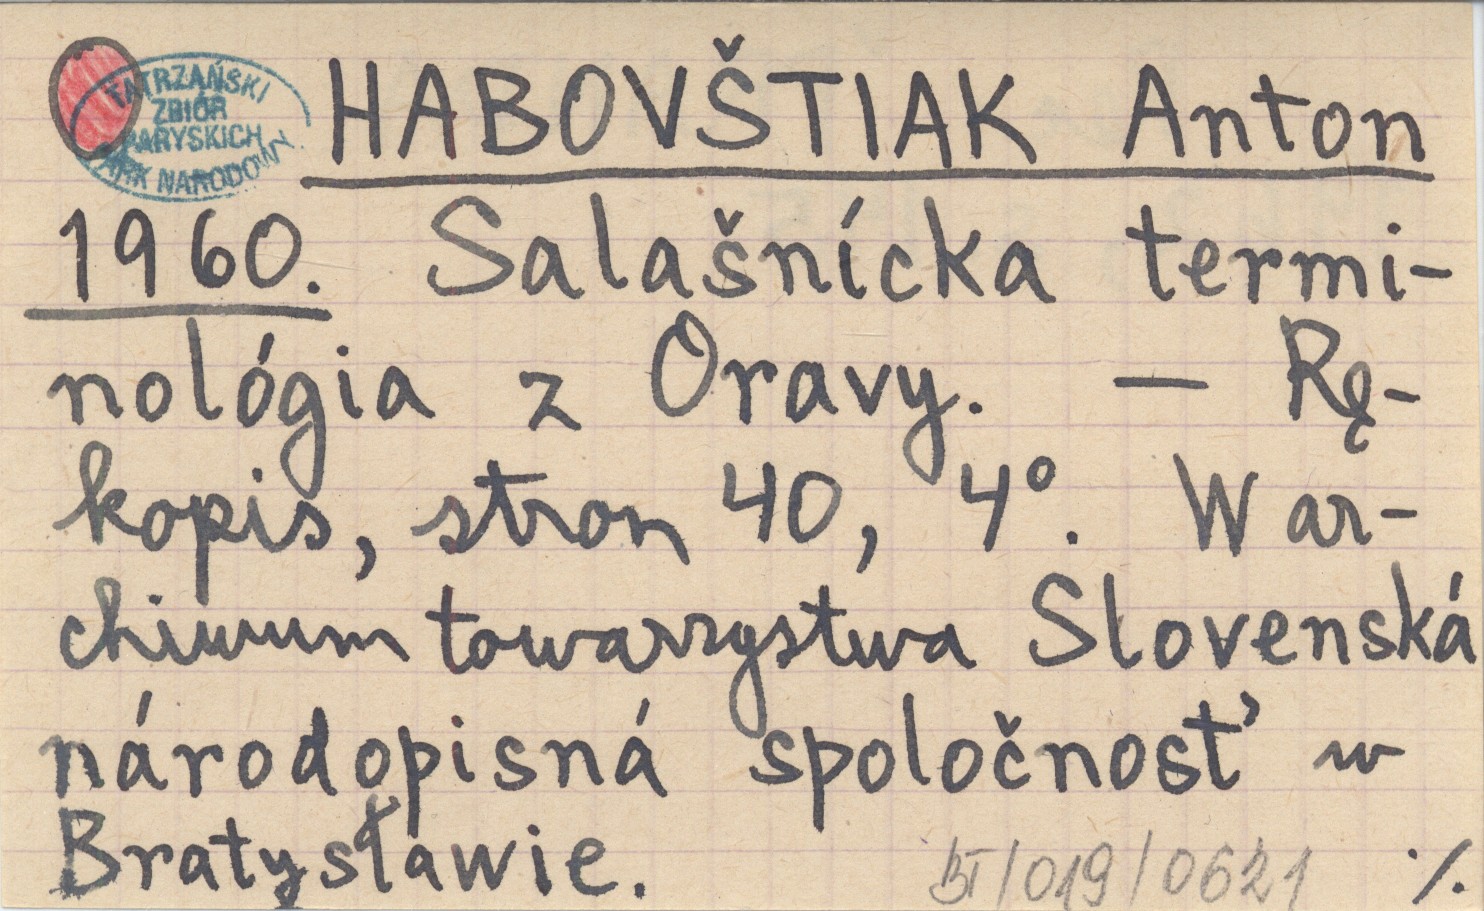 TATRZAŃSKI
ZBIÓR
PARYSKICH
PARK NARODOWY
HABOVŠTIAK Anton
1960. Salašnícka termi-
nológia z Oravy. — Rę-
kopis, stron 40, 4°. W ar-
chiwum towarzystwa Slovenská
národopisná spoločnosť w
Bratysławie.
BI/019/0621 ./.